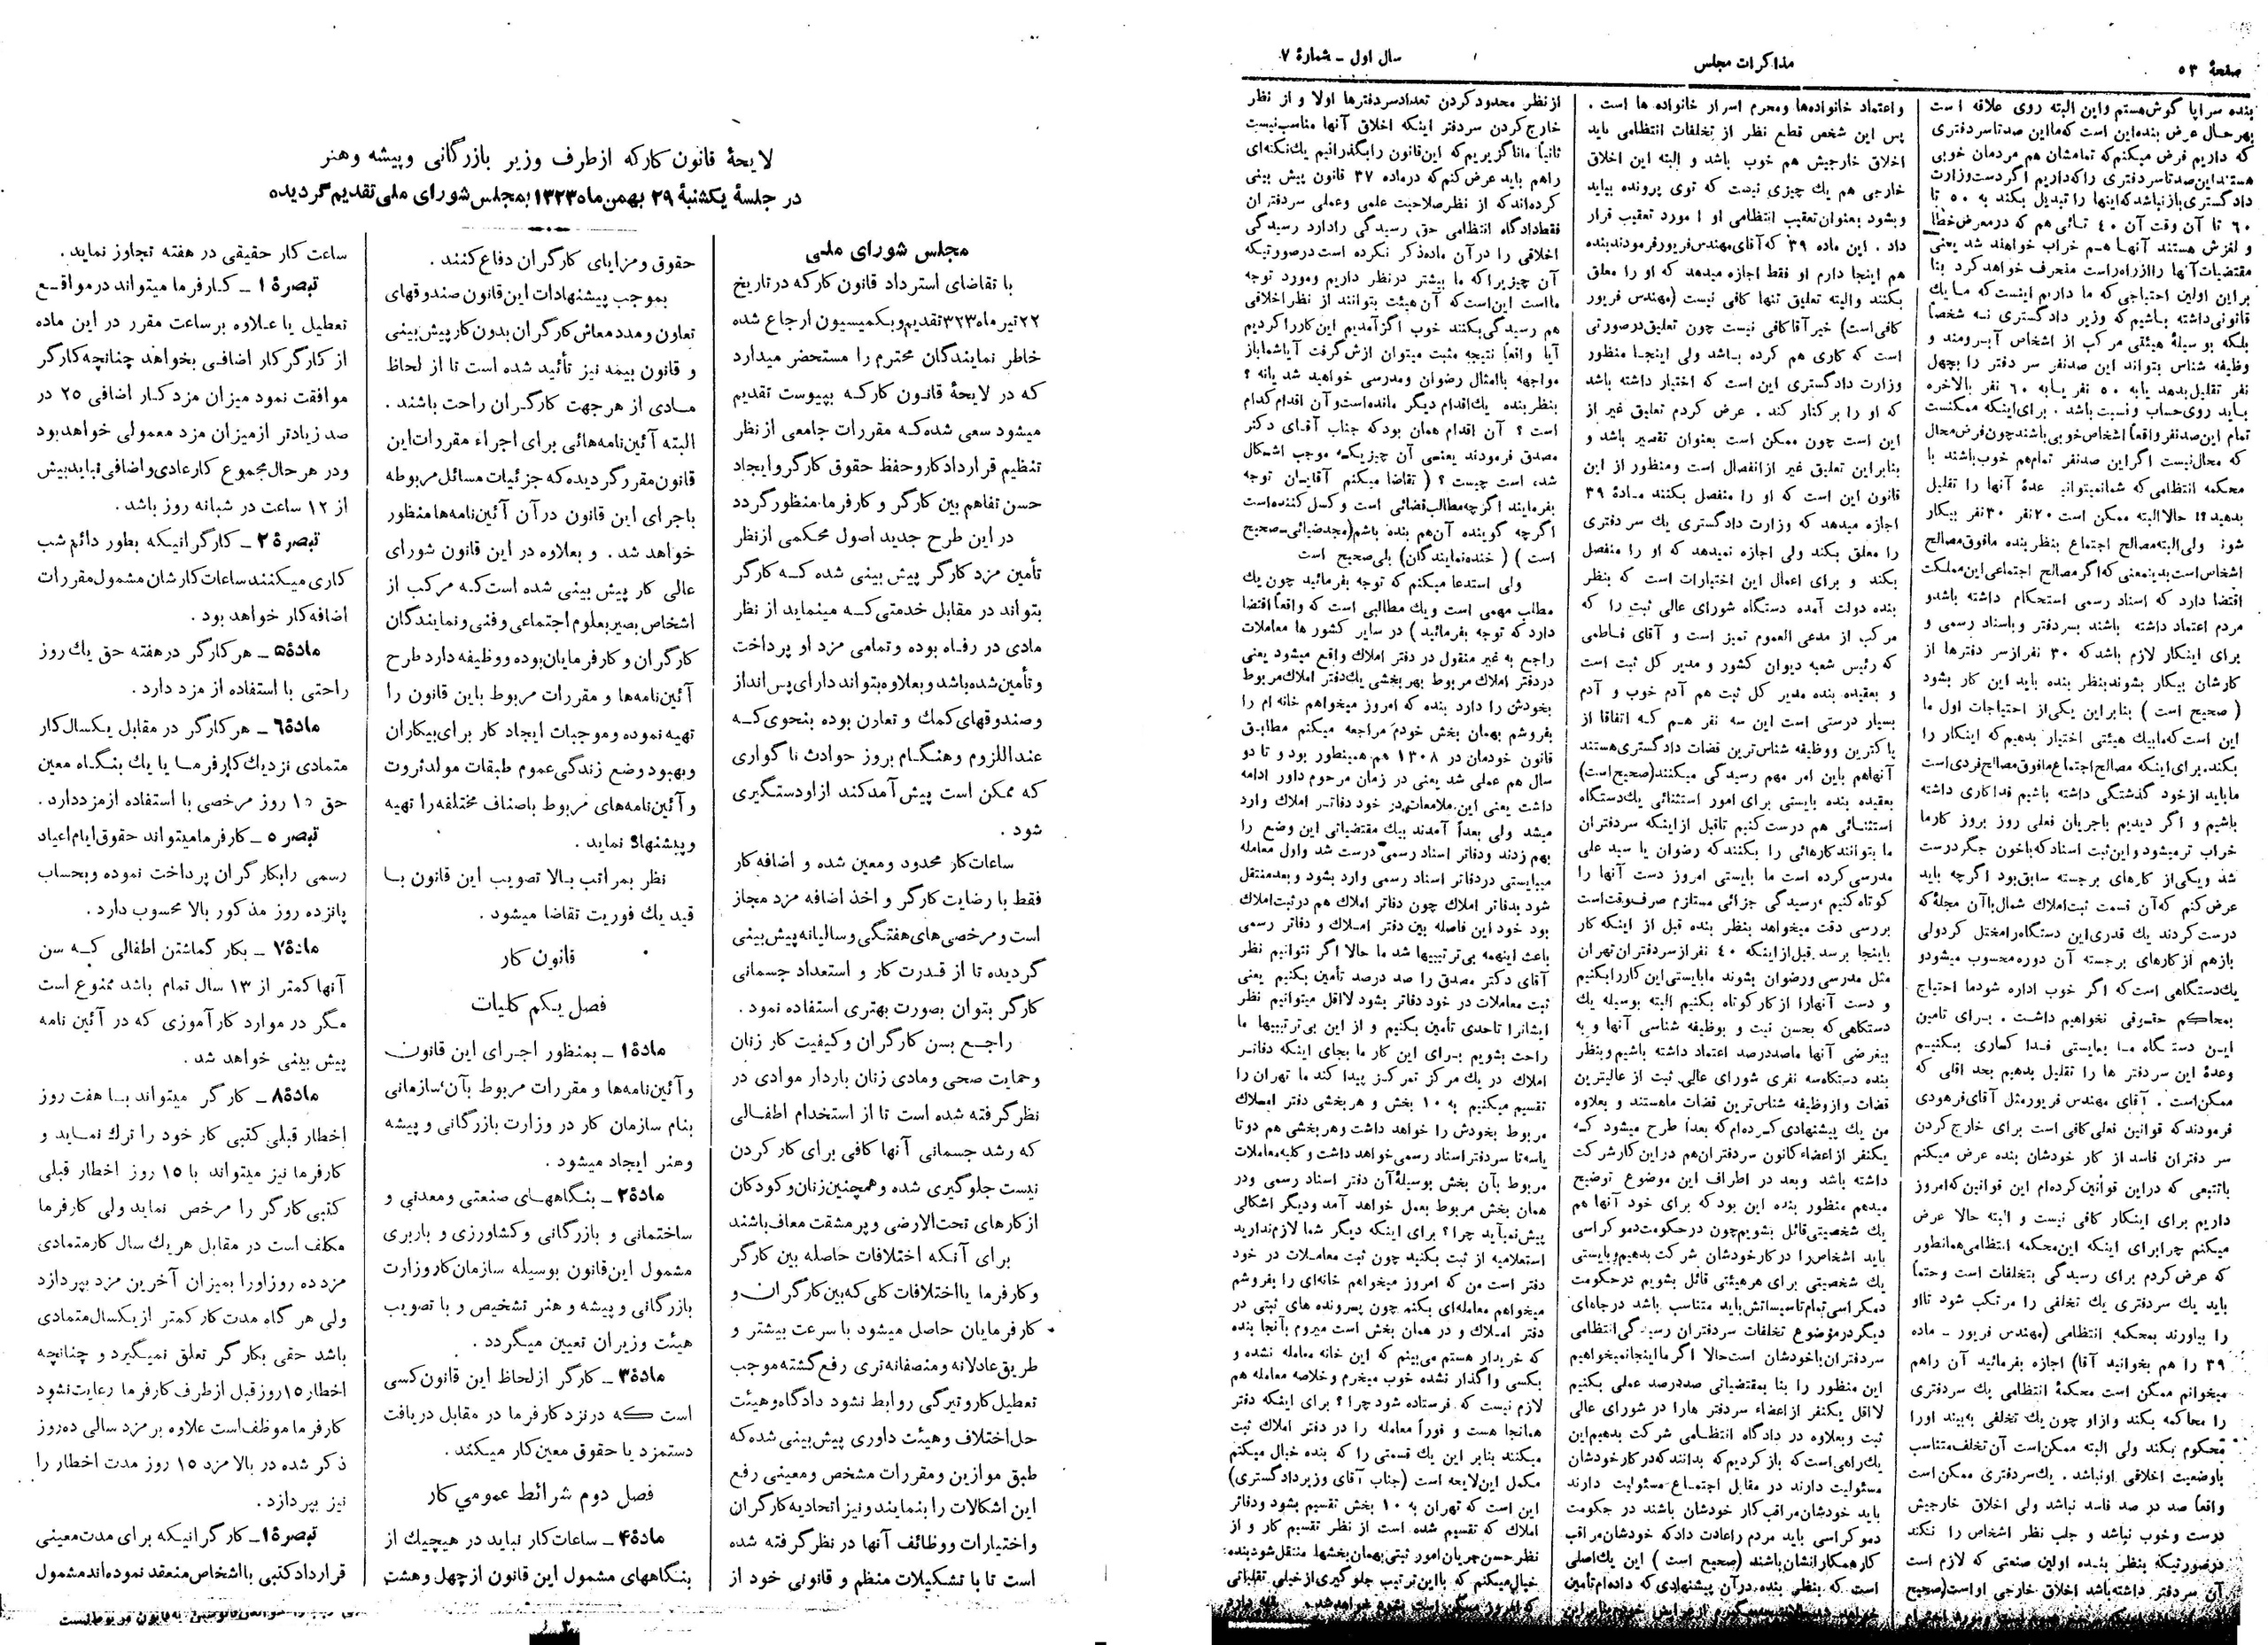 صفحهٔ ٥٣
مذاکرات مجلس
سال اول ـ شمارهٔ ٧
بنده سراپا گوش هستم و این البته روی علاقه است
بهرحال عرض بنده این است که ما این صد تا سردفتری
که داریم فرض میکنم که تمامشان هم مردمان خوبی
هستند این صد تا سردفتری را که داریم اگر دست وزارت
دادگستری باز نباشد که اینها را تبدیل بکند به ٥٠ تا
٦٠ تا آن وقت آن ٤٠ تائی هم که در معرض خطا
و لغزش هستند آنها هم خراب خواهند شد یعنی
مقتضیات آنها را از راه راست منحرف خواهد کرد بنا
براین اولین احتیاجی که ما داریم اینست که ما یك
قانونی داشته باشیم که وزیر دادگستری نه شخصاً
بلکه بوسیلهٔ هیئتی مرکب از اشخاص آبرومند و
وظیفه شناس بتواند این صد نفر سر دفتر را بچهل
نفر تقلیل بدهد یا به ٥٠ نفر یا به ٦٠ نفر بالاخره
باید روی حساب و نسبت باشد . برای اینکه ممکنست
تمام این صد نفر واقعاً اشخاص خوبی باشند چون فرض محال
که محال نیست اگر این صد نفر تمام هم خوب باشند با
محکمه انتظامی که شما نمیتوانید عدهٔ آنها را تقلیل
بدهید؟! حالا البته ممکن است ٢٠ نفر ٣٠ نفر بیکار
شوند ولی البته مصالح اجتماع بنظر بنده مافوق مصالح
اشخاص است بدینمعنی که اگر مصالح اجتماعی این مملکت
اقتضا دارد که اسناد رسمی استحکام داشته باشد و
مردم اعتماد داشته باشند بسردفتر و باسناد رسمی و
برای اینکار لازم باشد که ٣٠ نفر از سر دفترها از
کارشان بیکار بشوند بنظر بنده باید این کار بشود
( صحیح است ) بنابراین یکی از احتیاجات اول ما
این است که ما بیك هیئتی اختیار بدهیم که اینکار را
بکند. برای اینکه مصالح اجتماع مافوق مصالح فردی است
ما باید از خود گذشتگی داشته باشیم فداکاری داشته
باشیم و اگر دیدیم با جریان فعلی روز بروز کار ما
خراب تر میشود و این ثبت اسناد که با خون جگر درست
شد و یکی از کارهای برجسته سابق بود اگرچه باید
عرض کنم که آن قسمت ثبت املاك شمال با آن عجله که
درست کردند یك قدری این دستگاه را مختل کرد ولی
بازهم از کارهای برجسته آن دوره محسوب میشود و
یك دستگاهی است که اگر خوب اداره شود ما احتیاج
بمحاکم حقوقی نخواهیم داشت . برای تأمین
این دستگاه ما بایستی فداکاری بکنیم
و عدهٔ این سردفتر ها را تقلیل بدهیم بحد اقلی که
ممکن است . آقای مهندس فریور مثل آقای فرهودی
فرمودند که قوانین فعلی کافی است برای خارج کردن
سر دفتران فاسد از کار خودشان بنده عرض میکنم
با تتبعی که در این قوانین کرده ام این قوانین که امروز
داریم برای اینکار کافی نیست و البته حالا عرض
میکنم چرا برای اینکه این محکمه انتظامی همانطور
که عرض کردم برای رسیدگی بتخلفات است و حتماً
باید یك سردفتری یك تخلفی را مرتکب شود تا او
را بیاورند بمحکمه انتظامی (مهندس فریور ـ ماده
٣٩ را هم بخوانید آقا) اجازه بفرمائید آن راهم
میخوانم ممکن است محکمهٔ انتظامی یك سردفتری
را محاکمه بکند و از او چون یك تخلفی به بیند اورا
محکوم بکند ولی البته ممکن است آن تخلف متناسب
با وضعیت اخلاقی او نباشد . یك سردفتری ممکن است
واقعاً صد در صد فاسد نباشد ولی اخلاق خارجیش
درست و خوب نباشد و جلب نظر اشخاص را نکند
در صورتیکه بنظر بنده اولین صنعتی که لازم است
آن سردفتر داشته باشد اخلاق خارجی او است (صحیح
و اعتماد خانواده ها و محرم اسرار خانواده ها است .
پس این شخص قطع نظر از تخلفات انتظامی باید
اخلاق خارجیش هم خوب باشد و البته این اخلاق
خارجی هم یك چیزی نیست که توی پرونده بیاید
و بشود بعنوان تعقیب انتظامی او ا مورد تعقیب قرار
داد . این ماده ٣٩ که آقای مهندس فریور فرمودند بنده
هم اینجا دارم او فقط اجازه میدهد که او را معلق
بکنند و البته تعلیق تنها کافی نیست (مهندس فریور
کافی است) خیر آقا کافی نیست چون تعلیق در صورتی
است که کاری هم کرده باشد ولی اینجا منظور
وزارت دادگستری این است که اختیار داشته باشد
که او را برکنار کند . عرض کردم تعلیق غیر از
این است چون ممکن است بعنوان تقصیر باشد و
بنابراین تعلیق غیر از انفصال است و منظور از این
قانون این است که او را منفصل بکنند مادهٔ ٣٩
اجازه میدهد که وزارت دادگستری یك سر دفتری
را معلق بکند ولی اجازه نمیدهد که او را منفصل
بکند و برای اعمال این اختیارات است که بنظر
بنده دولت آمده دستگاه شورای عالی ثبت را که
مرکب از مدعی العموم تمیز است و آقای فاطمی
که رئیس شعبه دیوان کشور و مدیر کل ثبت است
و بعقیده بنده مدیر کل ثبت هم آدم خوب و آدم
بسیار درستی است این سه نفر هم که اتفاقا از
پاکترین و وظیفه شناس ترین قضات دادگستری هستند
آنهاهم باین امر مهم رسیدگی میکنند (صحیح است)
بعقیده بنده بایستی برای امور استثنائی یك دستگاه
استثنائی هم درست کنیم تا قبل از اینکه سردفتران
ما بتوانند کارهائی را بکنند که رضوان یا سید علی
مدرسی کرده است ما بایستی امروز دست آنها را
کوتاه کنیم ، رسیدگی جزائی مستلزم صرف وقت است
بررسی دقت میخواهد بنظر بنده قبل از اینکه کار
باینجا برسد قبل از اینکه ٤٠ نفر از سردفتران تهران
مثل مدرسی و رضوان بشوند ما بایستی این کار را بکنیم
و دست آنها را از کار کوتاه بکنیم البته بوسیله یك
دستگاهی که بحسن نیت و بوظیفه شناسی آنها و به
بیغرضی آنها ما صد درصد اعتماد داشته باشیم و بنظر
بنده دستگاه سه نفری شورای عالی ثبت از عالیترین
قضات و از وظیفه شناس ترین قضات ما هستند و بعلاوه
من یك پیشنهادی کرده ام که بعداً طرح میشود که
یکنفر از اعضاء کانون سردفتران هم در این کار شرکت
داشته باشد و بعد در اطراف این موضوع توضیح
میدهم منظور بنده این بود که برای خود آنها هم
یك شخصیتی قائل بشویم چون در حکومت دموکراسی
باید اشخاص را در کار خودشان شرکت بدهیم و بایستی
یك شخصیتی برای هر هیئتی قائل بشویم در حکومت
دمکراسی تمام تاسیساتش باید متناسب باشد در جاهای
دیگر در موضوع تخلفات سردفتران رسیدگی انتظامی
سردفتران با خودشان است حالا اگر ما اینجا نمیخواهیم
این منظور را بنا بمقتضیاتی صددرصد عملی بکنیم
لا اقل یکنفر از اعضاء سردفتر هارا در شورای عالی
ثبت و بعلاوه در دادگاه انتظامی شرکت بدهیم این
یك راهی است که باز کردیم که بدانند که در کار خودشان
مسئولیت دارند در مقابل اجتماع مسئولیت دارند
باید خودشان مراقب کار خودشان باشند در حکومت
دموکراسی باید مردم را عادت داد که خودشان مراقب
کار همکارانشان باشند (صحیح است ) این یك اصلی
است که بنظر بنده در آن پیشنهادی که داده ام تأمین
از نظر محدود کردن تعداد سردفترها اولا و از نظر
خارج کردن سردفتر اینکه اخلاق آنها مناسب نیست
ثانیاً ما ناگزیریم که این قانون را بگذرانیم یك نکته ای
راهم باید عرض کنم که در ماده ٣٧ قانون پیش بینی
کرده اند که از نظر صلاحیت علمی و عملی سردفتران
فقط دادگاه انتظامی حق رسیدگی را دارد رسیدگی
اخلاقی را در آن ماده ذکر نکرده است در صورتیکه
آن چیزیرا که ما بیشتر در نظر داریم و مورد توجه
ما است این است که آن هیئت بتوانند از نظر اخلاقی
هم رسیدگی بکنند خوب اگر آمدیم این کار را کردیم
آیا واقعاً نتیجه مثبت میتوان ازش گرفت آیا شما باز
مواجهه با امثال رضوان و مدرسی خواهید شد یا نه ؟
بنظر بنده یك اقدام دیگر مانده است و آن اقدام کدام
است ؟ آن اقدام همان بود که جناب آقای دکتر
مصدق فرمودند یعنی آن چیزیکه موجب اشکال
شده است چیست ؟ ( تقاضا میکنم آقایان توجه
بفرمایند اگرچه مطالب قضائی است و کسل کننده است
اگرچه گوینده آن هم بنده باشم (مجد ضیائی ـ صحیح
است ) ( خنده نمایندگان) بلی صحیح است
ولی استدعا میکنم که توجه بفرمائید چون یك
مطلب مهمی است و یك مطالبی است که واقعاً اقتضا
دارد که توجه بفرمائید ) در سایر کشور ها معاملات
راجع به غیر منقول در دفتر املاك واقع میشود یعنی
در دفتر املاك مربوط بهر بخشی یك دفتر املاك مربوط
بخودش را دارد بنده که امروز میخواهم خانه ام را
بفروشم بهمان بخش خودم مراجعه میکنم مطابق
قانون خودمان در ١٣٠٨ هم همینطور بود و تا دو
سال هم عملی شد یعنی در زمان مرحوم داور ادامه
داشت یعنی این معاملات در خود دفاتر املاك وارد
میشد ولی بعداً آمدند بیك مقتضیاتی این وضع را
بهم زدند و دفاتر اسناد رسمی درست شد و اول معامله
میبایستی در دفاتر اسناد رسمی وارد بشود و بعد منتقل
شود بدفاتر املاك چون دفاتر املاك هم در ثبت املاك
بود خود این فاصله بین دفتر املاك و دفاتر رسمی
باعث اینهمه بی ترتیبیها شد ما حالا اگر نتوانیم نظر
آقای دکتر مصدق را صد درصد تأمین بکنیم یعنی
ثبت معاملات در خود دفاتر بشود لااقل میتوانیم نظر
ایشانرا تا حدی تأمین بکنیم و از این بی ترتیبیها ما
راحت بشویم برای این کار ما بجای اینکه دفاتر
املاك در یك مرکز تمرکز پیدا کند ما تهران را
تقسیم میکنیم به ١٠ بخش و هر بخشی دفتر املاك
مربوط بخودش را خواهد داشت و هر بخشی هم دو تا
یا سه تا سردفتر اسناد رسمی خواهد داشت و کلیه معاملات
مربوط بآن بخش بوسیلهٔ آن دفتر اسناد رسمی و در
همان بخش مربوط بعمل خواهد آمد و دیگر اشکالی
پیش نمیآید چرا؟ برای اینکه دیگر شما لازم ندارید
استعلامیه از ثبت بکنید چون ثبت معاملات در خود
دفتر است من که امروز میخواهم خانه ای را بفروشم
میخواهم معامله ای بکنم چون پرونده های ثبتی در
دفتر املاك و در همان بخش است میروم بآنجا بنده
که خریدار هستم می بینم که این خانه معامله نشده و
بکسی واگذار نشده خوب میخرم و خلاصه معامله هم
لازم نیست که فرستاده شود چرا ؟ برای اینکه دفتر
همانجا هست و فوراً معامله را در دفتر املاك ثبت
میکنند بنابر این یك قسمتی را که بنده خیال میکنم
مکمل این لایحه است (جناب آقای وزیر دادگستری)
این است که تهران به ١٠ بخش تقسیم بشود و دفاتر
املاك که تقسیم شده است از نظر تقسیم کار و از
نظر حسن جریان امور ثبتی بهمان بخشها منتقل شود بنده
خیال میکنم که با این ترتیب جلوگیری از خیلی تقلباتی
لایحهٔ قانون کار که از طرف وزیر بازرگانی و پیشه و هنر
در جلسهٔ یکشنبهٔ ٢٩ بهمن ماه ١٣٢٣ بمجلس شورای ملی تقدیم گردیده
مجلس شورای ملی
با تقاضای استرداد قانون کار که در تاریخ
٢٢ تیر ماه ٣٢٣ تقدیم و بکمیسیون ارجاع شده
خاطر نمایندگان محترم را مستحضر میدارد
که در لایحهٔ قانون کار که بپیوست تقدیم
میشود سعی شده که مقررات جامعی از نظر
تنظیم قرارداد کار و حفظ حقوق کارگر و ایجاد
حسن تفاهم بین کارگر و کارفرما منظور گردد
در این طرح جدید اصول محکمی از نظر
تأمین مزد کارگر پیش بینی شده که کارگر
بتواند در مقابل خدمتی که مینماید از نظر
مادی در رفاه بوده و تمامی مزد او پرداخت
و تأمین شده باشد و بعلاوه بتواند دارای پس انداز
و صندوقهای کمك و تعاون بوده بنحوی که
عنداللزوم و هنگام بروز حوادث ناگواری
که ممکن است پیش آمد کند از او دستگیری
شود .
ساعات کار محدود و معین شده و اضافه کار
فقط با رضایت کارگر و اخذ اضافه مزد مجاز
است و مرخصی های هفتگی و سالیانه پیش بینی
گردیده تا از قدرت کار و استعداد جسمانی
کارگر بتوان بصورت بهتری استفاده نمود .
راجع بسن کارگران و کیفیت کار زنان
و حمایت صحی و مادی زنان باردار موادی در
نظر گرفته شده است تا از استخدام اطفالی
که رشد جسمانی آنها کافی برای کار کردن
نیست جلوگیری شده و همچنین زنان و کودکان
از کارهای تحت الارضی و پر مشقت معاف باشند
برای آنکه اختلافات حاصله بین کارگر
و کارفرما یا اختلافات کلی که بین کارگران و
کارفرمایان حاصل میشود با سرعت بیشتر و
طریق عادلانه و منصفانه تری رفع گشته موجب
تعطیل کار و تیرگی روابط نشود دادگاه و هیئت
حل اختلاف و هیئت داوری پیش بینی شده که
طبق موازین و مقررات مشخص و معینی رفع
این اشکالات را بنمایند و نیز اتحادیه کارگران
و اختیارات و وظائف آنها در نظر گرفته شده
است تا با تشکیلات منظم و قانونی خود از
حقوق و مزایای کارگران دفاع کنند .
بموجب پیشنهادات این قانون صندوقهای
تعاون و مدد معاش کارگران بدون کار پیش بینی
و قانون بیمه نیز تأئید شده است تا از لحاظ
مادی از هر جهت کارگران راحت باشند .
البته آئین نامه هائی برای اجراء مقررات این
قانون مقرر گردیده که جزئیات مسائل مربوطه
باجرای این قانون در آن آئین نامه ها منظور
خواهد شد . و بعلاوه در این قانون شورای
عالی کار پیش بینی شده است که مرکب از
اشخاص بصیر بعلوم اجتماعی و فنی و نمایندگان
کارگران و کارفرمایان بوده و وظیفه دارد طرح
آئین نامه ها و مقررات مربوط باین قانون را
تهیه نموده و موجبات ایجاد کار برای بیکاران
و بهبود وضع زندگی عموم طبقات مولد ثروت
و آئین نامه های مربوط باصناف مختلفه را تهیه
و پیشنهاد نماید .
نظر بمراتب بالا تصویب این قانون با
قید یك فوریت تقاضا میشود .
قانون کار
فصل یکم کلیات
مادهٔ ١ ـ بمنظور اجرای این قانون
و آئین نامه ها و مقررات مربوط بآن، سازمانی
بنام سازمان کار در وزارت بازرگانی و پیشه
و هنر ایجاد میشود .
مادهٔ ٢ ـ بنگاههای صنعتی و معدنی و
ساختمانی و بازرگانی و کشاورزی و باربری
مشمول این قانون بوسیله سازمان کار وزارت
بازرگانی و پیشه و هنر تشخیص و با تصویب
هیئت وزیران تعیین میگردد .
مادهٔ ٣ ـ کارگر از لحاظ این قانون کسی
است که در نزد کارفرما در مقابل دریافت
دستمزد یا حقوق معین کار میکند .
فصل دوم شرائط عمومی کار
مادهٔ ۴ ـ ساعات کار نباید در هیچیك از
بنگاههای مشمول این قانون از چهل و هشت
ساعت کار حقیقی در هفته تجاوز نماید .
تبصرهٔ ١ ـ کارفرما میتواند در مواقع
تعطیل یا علاوه بر ساعت مقرر در این ماده
از کارگر کار اضافی بخواهد چنانچه کارگر
موافقت نمود میزان مزد کار اضافی ٢٥ در
صد زیادتر از میزان مزد معمولی خواهد بود
و در هر حال مجموع کار عادی و اضافی نباید بیش
از ١٢ ساعت در شبانه روز باشد .
تبصرهٔ ٢ ـ کارگرانیکه بطور دائم شب
کاری میکنند ساعات کارشان مشمول مقررات
اضافه کار خواهد بود .
مادهٔ ۵ ـ هر کارگر در هفته حق یك روز
راحتی با استفاده از مزد دارد .
مادهٔ ٦ ـ هر کارگر در مقابل یکسال کار
متمادی نزدیك کارفرما یا یك بنگاه معین
حق ١٥ روز مرخصی با استفاده از مزد دارد .
تبصره ـ کارفرما میتواند حقوق ایام اعیاد
رسمی را بکارگران پرداخت نموده و بحساب
پانزده روز مذکور بالا محسوب دارد .
مادهٔ ٧ ـ بکار گماشتن اطفالی که سن
آنها کمتر از ١٣ سال تمام باشد ممنوع است
مگر در موارد کارآموزی که در آئین نامه
پیش بینی خواهد شد .
مادهٔ ٨ ـ کارگر میتواند با هفت روز
اخطار قبلی کتبی کار خود را ترك نماید و
کارفرما نیز میتواند با ١٥ روز اخطار قبلی
کتبی کارگر را مرخص نماید ولی کارفرما
مکلف است در مقابل هر یك سال کار متمادی
مزد ده روز اورا بمیزان آخرین مزد بپردازد
ولی هر گاه مدت کار کمتر از یکسال متمادی
باشد حقی بکارگر تعلق نمیگیرد و چنانچه
اخطار ١٥ روز قبل از طرف کارفرما رعایت نشود
کارفرما موظف است علاوه بر مزد سالی ده روز
ذکر شده در بالا مزد ١٥ روز مدت اخطار را
نیز بپردازد .
تبصرهٔ ١ ـ کارگرانیکه برای مدت معینی
قرارداد کتبی با اشخاص منعقد نموده اند مشمول